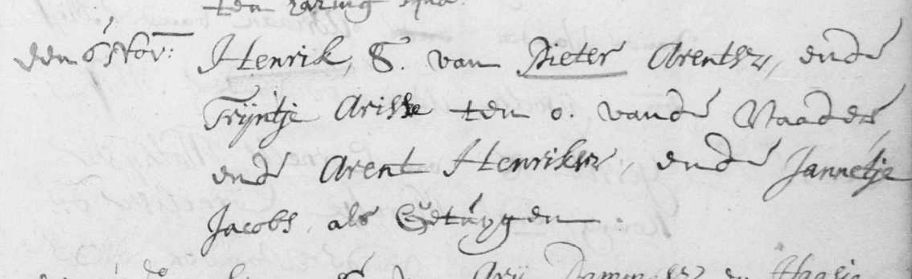 ten
den 6 Nov: Henrik, S. van Pieter Arentsz, ende
Trijntje Arisse ten o. vande Vaader
ende Arent Henriksz, ende Jannetje
Jacobs, als Getuygen.